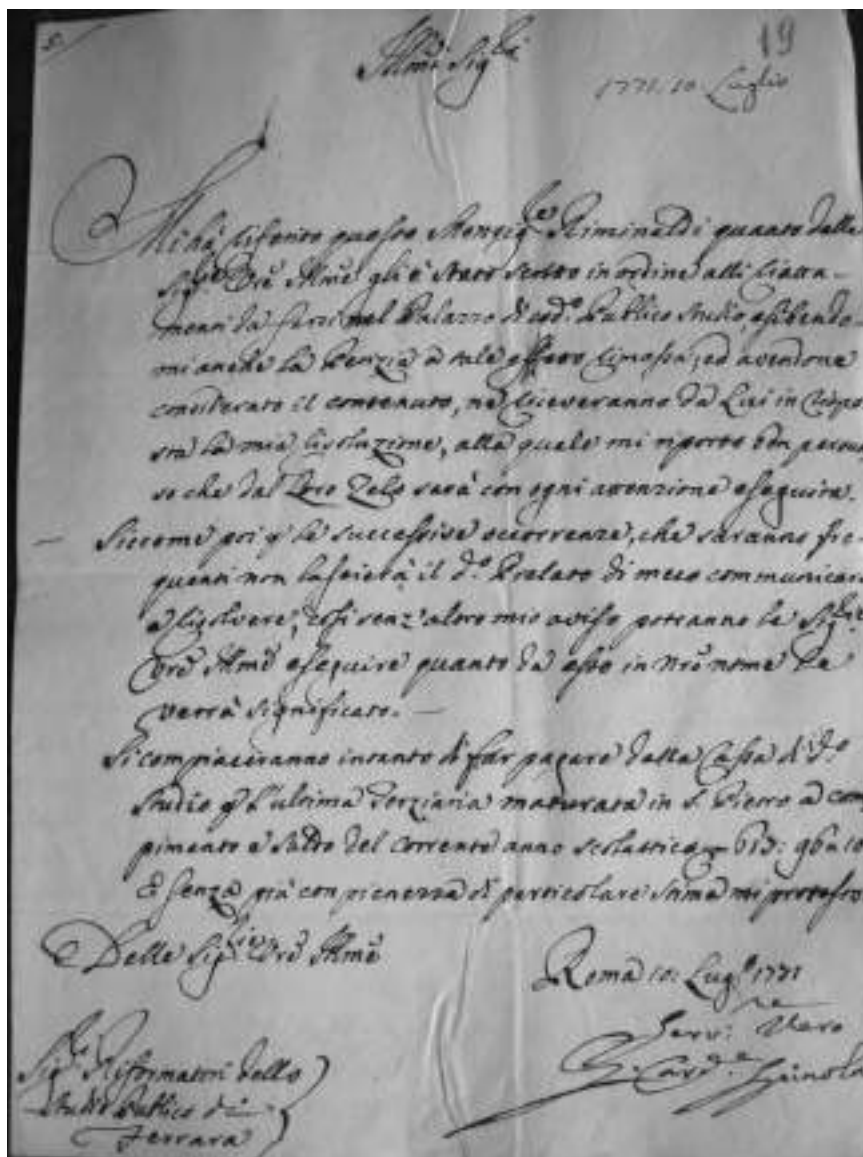 5. 19
Illmi Sigri
1771. 10. Luglio
Mi hà riferito questo Monsigre Riminaldi quanto dalle
Sigrie Vre Illme gli è stato scritto in ordine alli riatta-
menti da farsi nel Palazzo di cod.o Publico Studio, esibendo-
mi anche la Perizia a tale effetto rimessa; ed avendone
considerato il contenuto, ne riceveranno da Lui in rispo
sta la mia risoluzione, alla quale mi riporto ben persua
so che dal loro Zelo sarà con ogni attenzione eseguita.
Siccome poi p le successive occorrenze, che saranno fre-
quenti non lascierà il d.o Prelato di meco communicare
e risolvere, così senz'altro mio aviso potranno le Sigrie
Vre Illme eseguire quanto da esso in nro nome le
verrà significato.
Si compiaceranno intanto di far pagare dalla Cassa di d.o
Studio p l'ultima Terziaria maturata in S. Pietro a com
pimento e saldo del corrente anno scolastico 613: 96: 10
E senza più con pienezza di particolare stima mi protesto
Delle Sigrie Vre Illme
Roma 10: Lugo 1771
Serv: Vero
Card.e Spinola
Sigri Riformatori dello
Studio Publico di
Ferrara